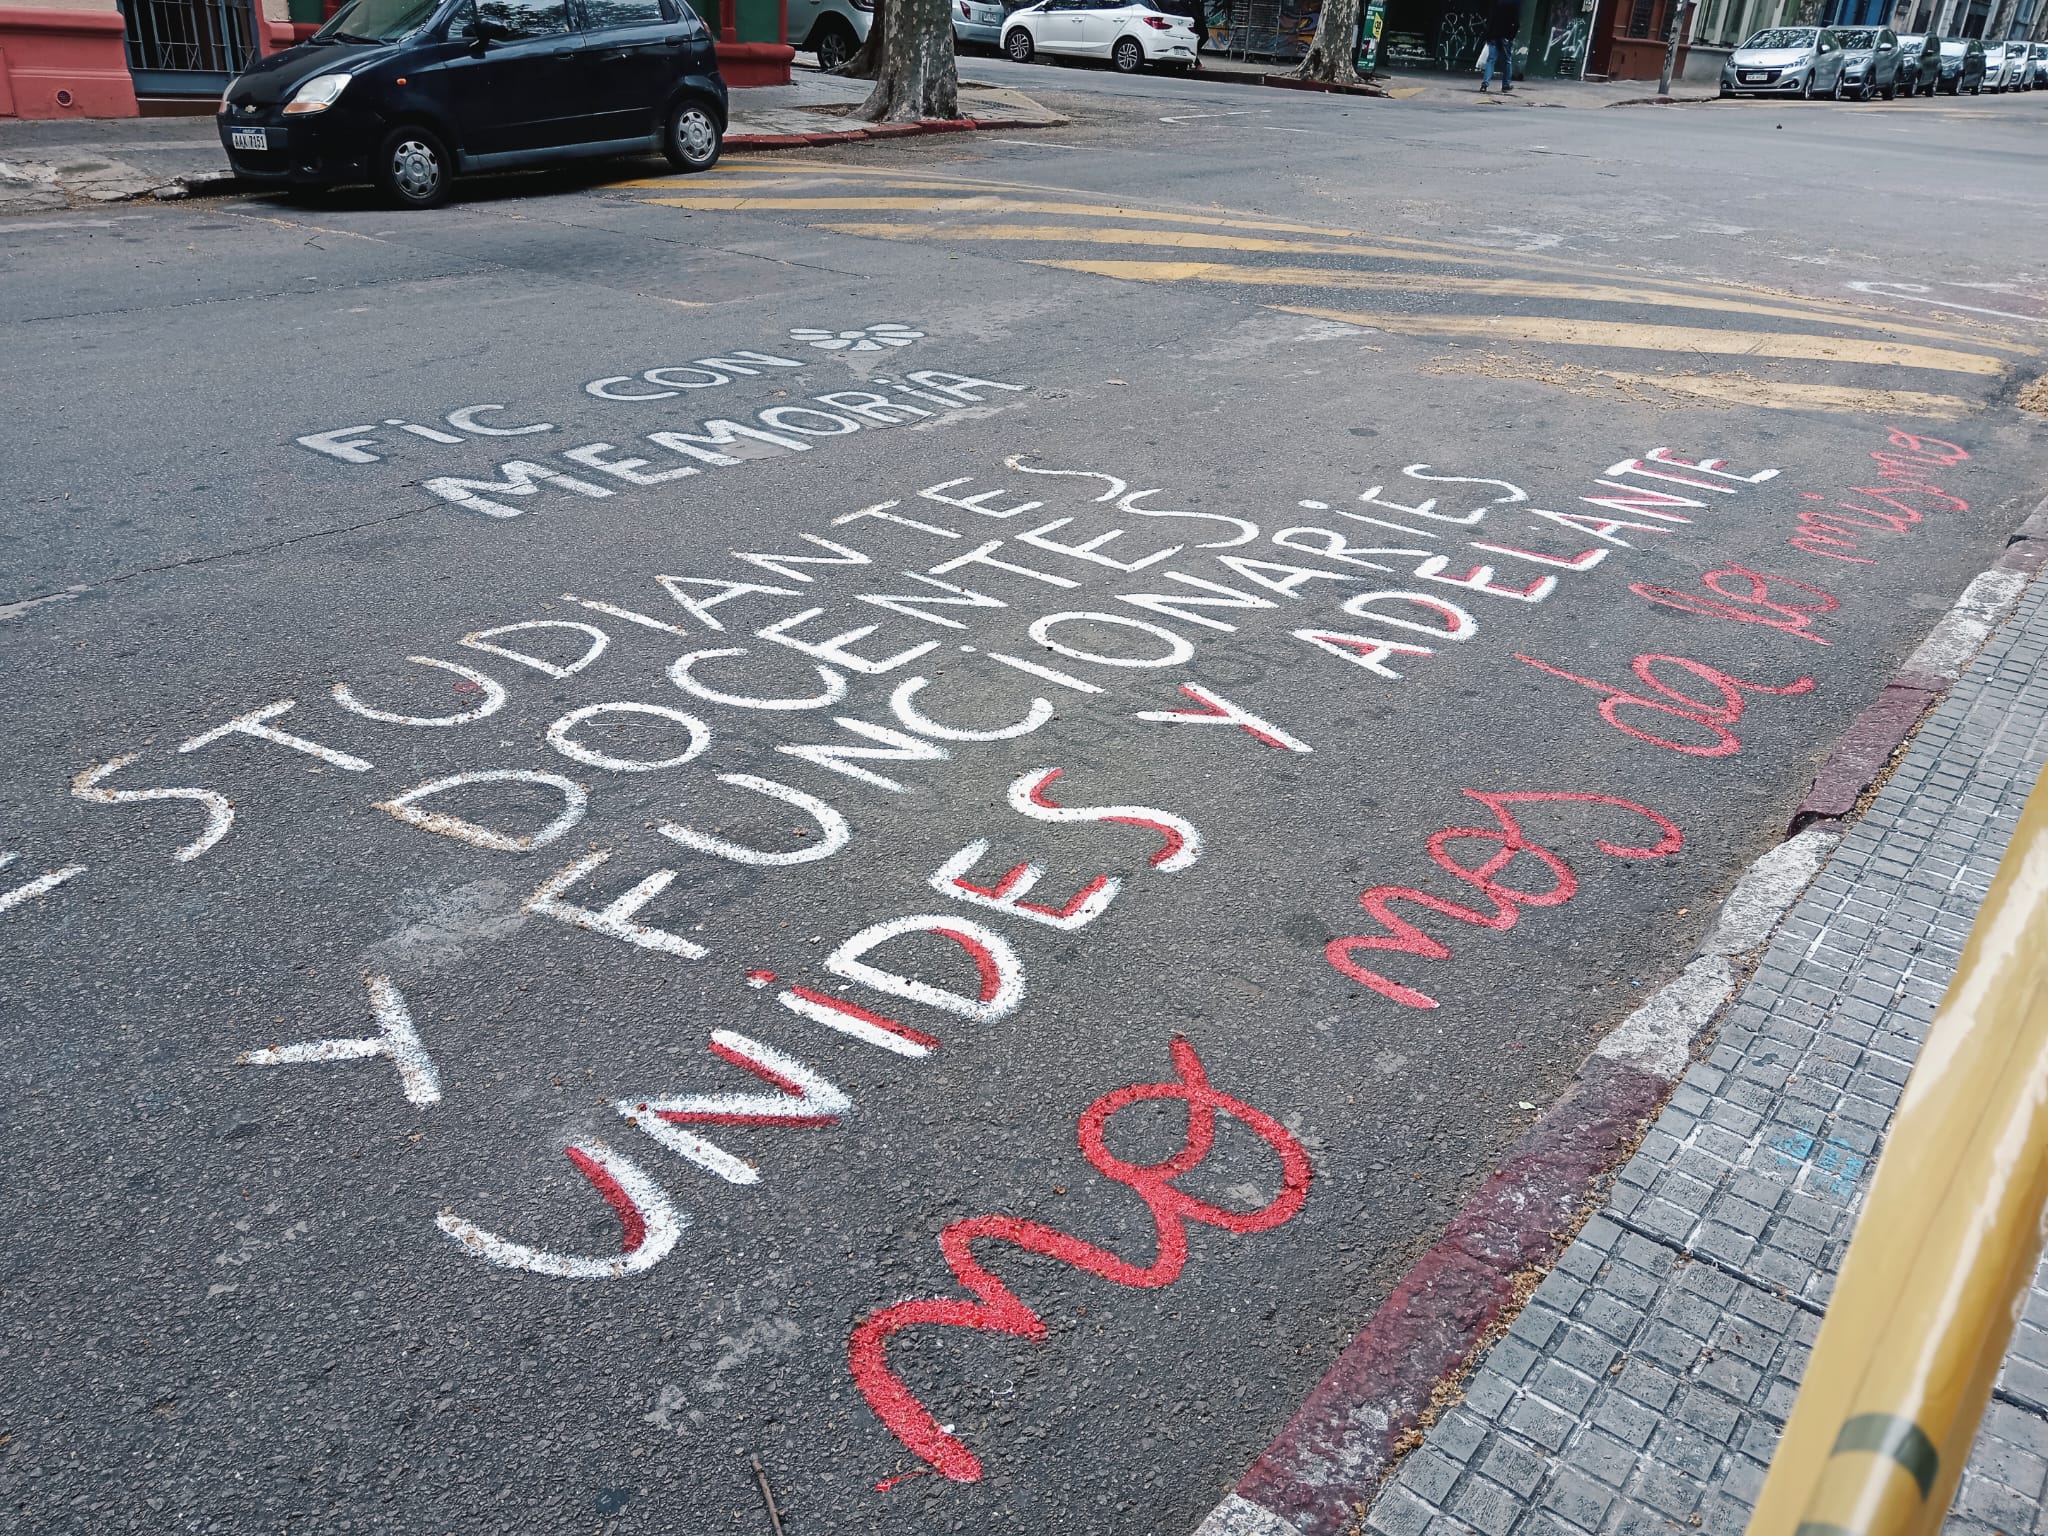 FiC CON
MEMORiA
ESTUDIANTES
DOCENTES
Y FUNCiONARiES
UNiDES Y ADELANTE
no nos da lo mismo
AAX 7151